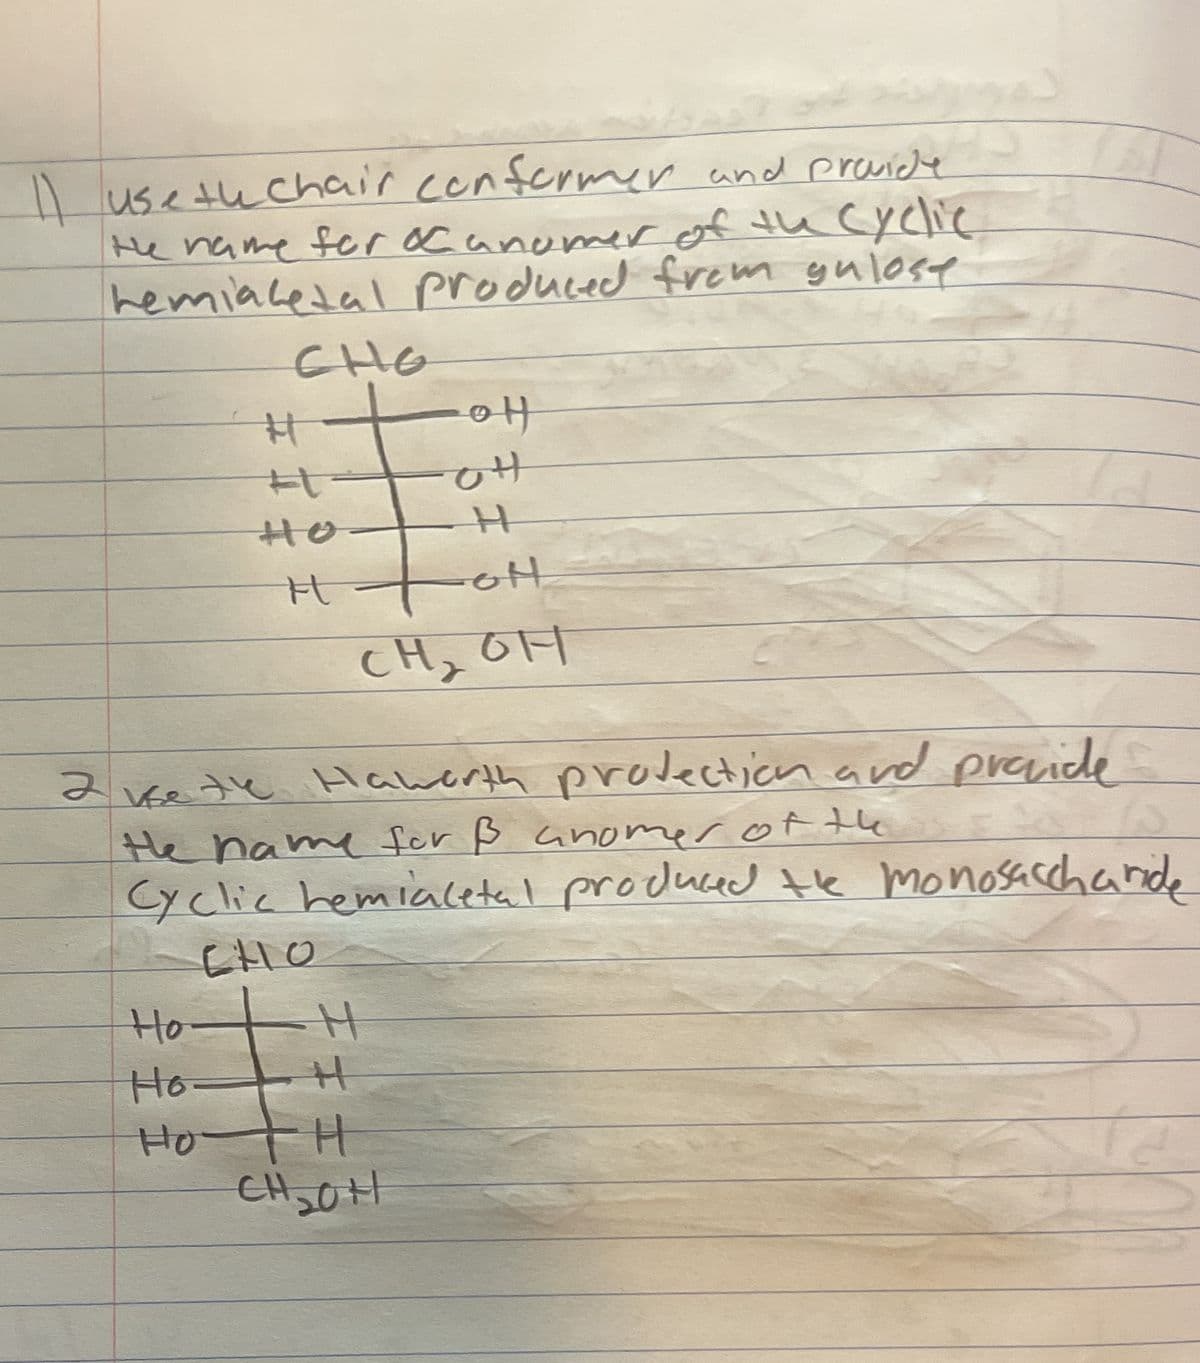 1) use the chair conformer and provide
the name for α anomer of the cyclic
hemiacetal produced from gulose
CHO
H OH
H OH
HO H
H OH
CH₂OH
2 use the Haworth protection and provide
the name for β anomer of the
Cyclic hemiacetal produced the monosaccharide
CHO
HO H
HO H
HO H
CH₂OH